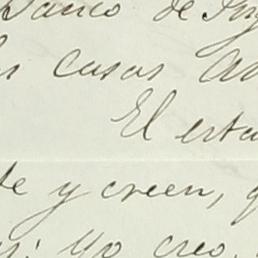 Banco de Ing
casas
El esta
te y creen,
Yo creo,